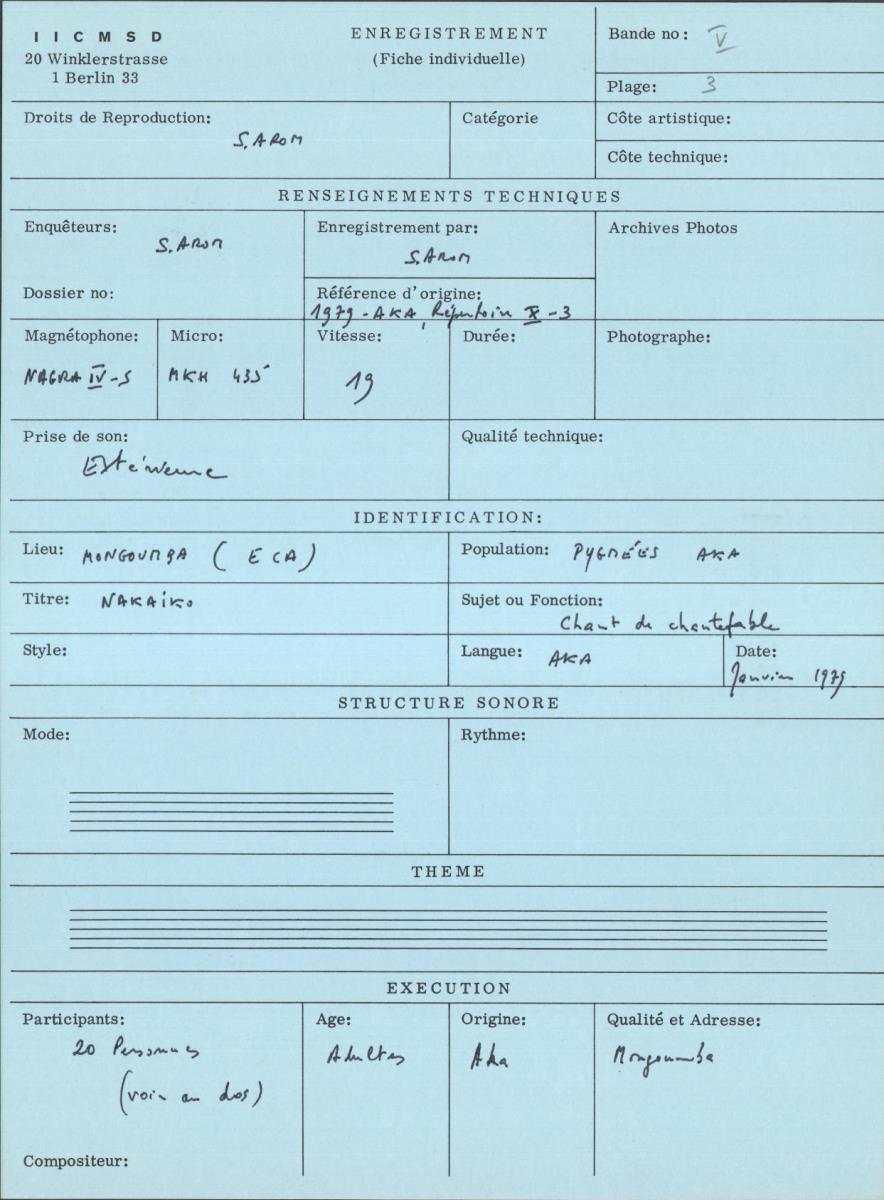 I I C M S D
20 Winklerstrasse
1 Berlin 33
ENREGISTREMENT
(Fiche individuelle)
Bande no : V
Plage: 3
Droits de Reproduction:
S. AROM
Catégorie
Côte artistique:
Côte technique:
RENSEIGNEMENTS TECHNIQUES
Enquêteurs:
S. AROM
Dossier no:
Enregistrement par:
S. AROM
Référence d'origine:
1979 - AKA, Répertoire X - 3
Archives Photos
Magnétophone:
NAGRA IV-S
Micro:
MKH 435
Vitesse:
19
Durée:
Photographe:
Prise de son:
Extérieure
Qualité technique:
IDENTIFICATION:
Lieu: MONGOUMBA ( ECA)
Population: PYGMÉES AKA
Titre: NAKAIKO
Sujet ou Fonction:
Chant de chantefable
Style:
Langue: AKA
Date:
Janvier 1979
STRUCTURE SONORE
Mode:
Rythme:
THEME
EXECUTION
Participants:
20 Personnes
(voir au dos)
Compositeur:
Age:
Adultes
Origine:
Aka
Qualité et Adresse:
Mongoumba